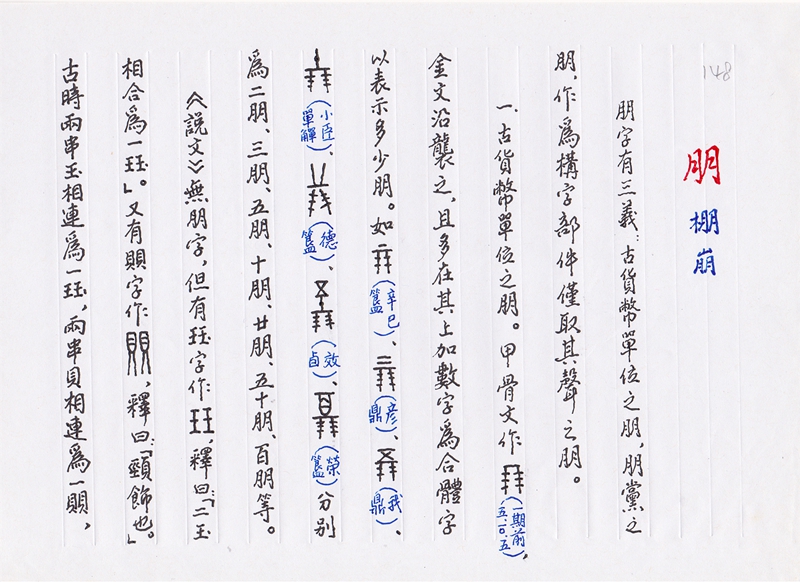 148
朋 棚 崩
朋字有三義：古貨幣單位之朋，朋黨之
朋，作爲構字部件僅取其聲之朋。
一、古貨幣單位之朋。甲骨文作（一期前五.一〇.五），
金文沿襲之，且多在其上加數字爲合體字
以表示多少朋。如（辛巳簋）、（彦鼎）、（我鼎）、
（小臣單觶）、（德簋）、（效卣）、（榮簋）分别
爲二朋、三朋、五朋、十朋、廿朋、五十朋、百朋等。
《說文》無朋字，但有玨字作，釋曰：「二玉
相合爲一玨」。又有賏字作，釋曰：「頸飾也。」
古時兩串玉相連爲一玨，兩串貝相連爲一賏，